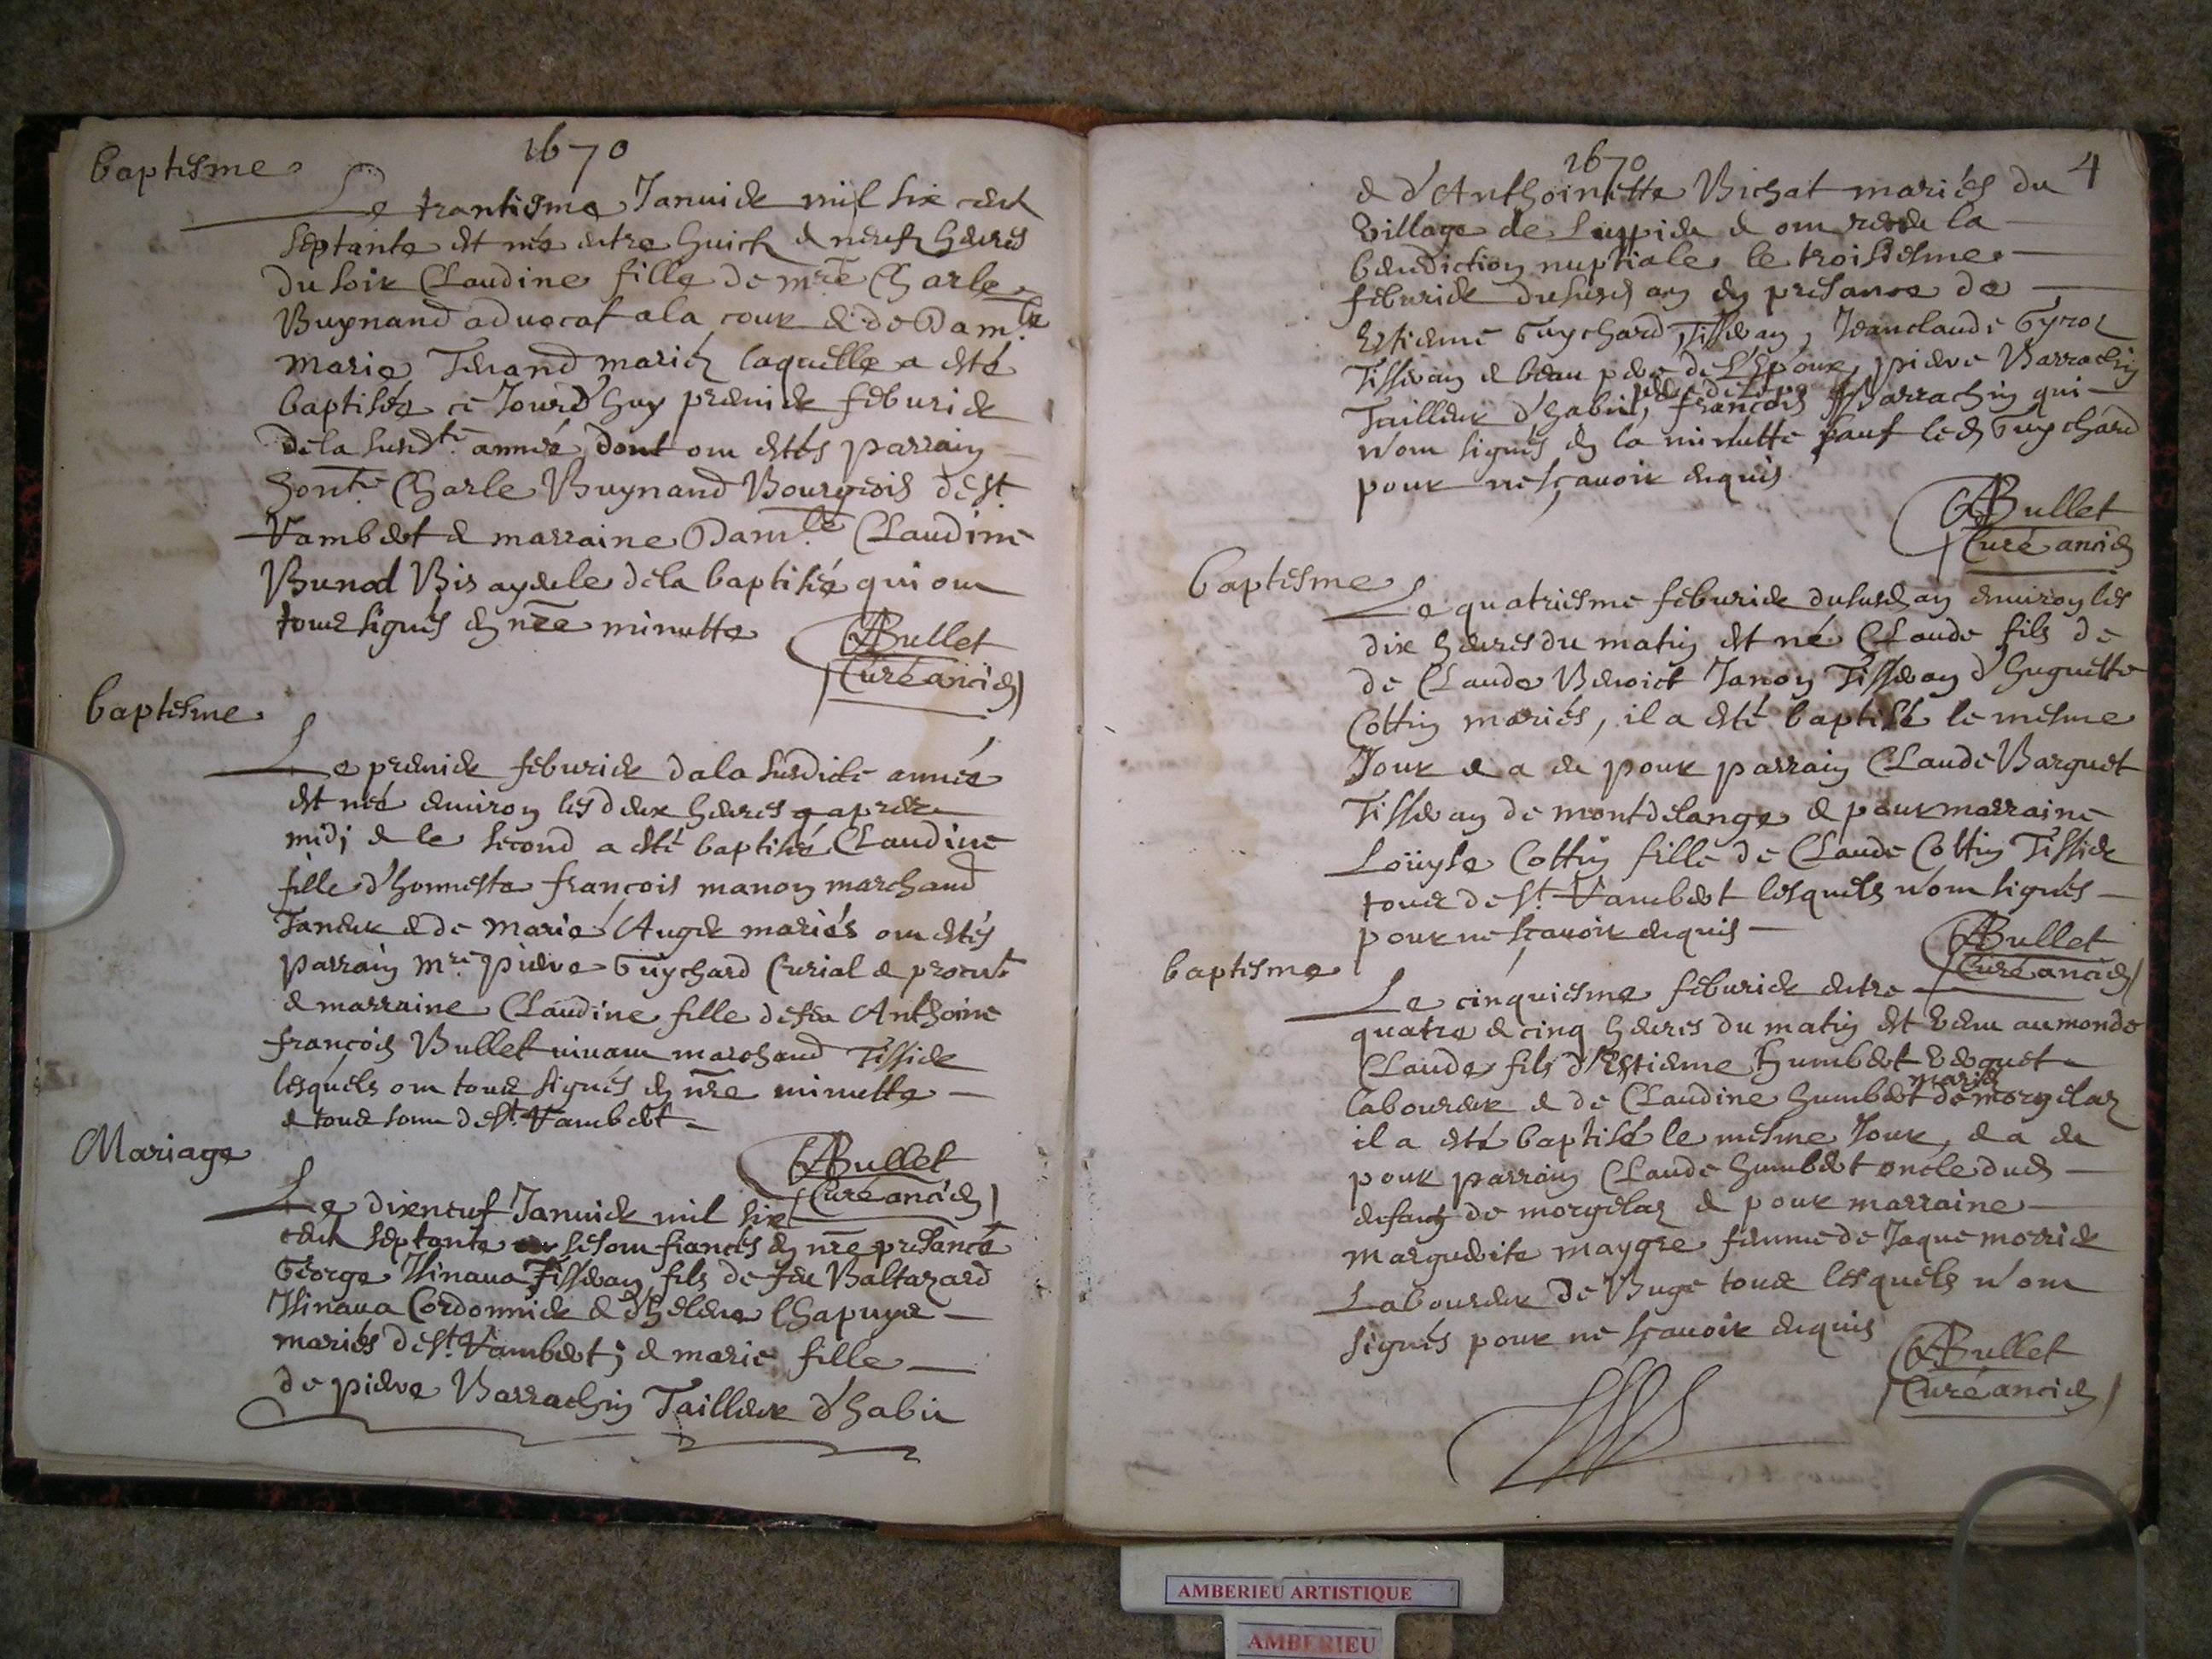 1670
baptesme
Le trantiesme Januier mil six cent
septante est née entre huict & neufz heures
du soir Claudine fille de mre Charle
Buynand aduocat a la cour & de Damlle
marie Tenand mariés laquelle a esté
baptisée ce Jourd'huy premier feburier
de la susdte année, dont on estés parrain
hontr Charle Buynand Bourgeois de st
Rambert & marraine Damlle Claudine
Bunod Bisayeule de la baptisée qui on
tous signés en nre minutte
ABullet
Curé ancien
baptesme
Le premier feburier da la susdicte année
est née enuiron les deux heures apres
midj & le second a esté baptisée Claudine
fille d'honneste francois manon marchand
Taneur & de marie Auger mariés on estés
parrain mre pierre Guychard Curial & procurr
& marraine Claudine fille de feu Anthoine
francois Bullet uiuant marchand Tissier
lesquels on tous signés en nre minutte
& tous sont de st Rambert
ABullet
Curé ancien
Mariage
Le dixneuf Januier mil six
cent septante se son fiancés en nre presance
George Tisseran fils de feu Baltazard
Cordonnier & d'helene Chapuye
mariés de st Rambert; & marie fille
de pierre Barrachin Tailleur d'habis
1670
4
& d'Anthoinette Bichat mariés du
Village de Luppieu & on receu la
benediction nuptiale le troisiesme
feburier du susd an en presance de
Estienne Guychard Tisseran, Jeanclaude Gyrod
Tisseran & beau pere de L'Epoux, pierre Barrachin
Tailleur d'habis, pere de L'epo francois Barrachin qui
n'on signés en la minutte sauf led Guychard
pour ne sçauoir enquis
ABullet
Curé ancien
baptesme
Le quatriesme feburier du susd an enuiron les
dix heures du matin est né Claude fils de
de Claude Benoict Janon Tisseran d'huguette
Cottin mariés, il a esté baptisé le mesme
Jour & a eu pour parrain Claude Barguet
Tisseran de montdelange & pour marraine
Loüyse Cottin fille de Claude Cottin Tissier
tous de st Rambert lesquels n'on signés
pour ne sçauoir enquis
ABullet
Curé ancien
baptesme
Le cinquiesme feburier entre
quatre & cinq heures du matin est venu au monde
Claude fils d'Estienne humbert
Laboureur & de Claudine humbert mariés de morgelaz
il a esté baptisé le mesme Jour, & a eu
pour parrain Claude humbert oncle dud
enfant de morgelaz & pour marraine
marguerite maygre femme de Jaque morrier
Laboureur de Buge tous lesquels n'on
signés pour ne sçauoir enquis
ABullet
Curé ancien
AMBERIEU ARTISTIQUE
AMBERIEU